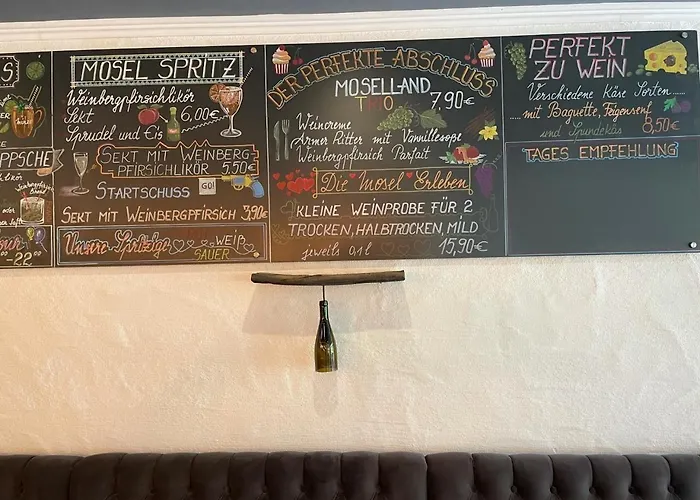 S
PPSCHE
"-22"
MOSEL SPRITZ
Weinbergpfirsichlikör
Sekt 6,00€
Sprudel und Eis
SEKT MIT WEINBERG-
PFIRSICHLIKÖR 5,50€
STARTSCHUSS GO!
SEKT MIT WEINBERGPFIRSICH 3,90€
Unsere Spritzige WEIß
SAUER
DER PERFEKTE ABSCHLUSS
MOSELLAND
TRIO 7,90€
Weincreme
Armer Ritter mit Vanillesoße
Weinbergpfirsich Parfait
Die Mosel Erleben
KLEINE WEINPROBE FÜR 2
TROCKEN, HALBTROCKEN, MILD
jeweils 0,1 l 15,90€
PERFEKT
ZU WEIN
Verschiedene Käse Sorten
..... mit Baguette, Feigensenf
und Spundekäs 8,50€
TAGES EMPFEHLUNG